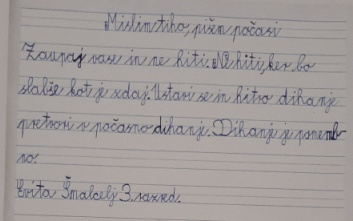 Mislim tiho, pišem počasi
Zaupaj vase in ne hiti. Ne hiti, ker bo
slabše kot je zdaj. Ustavi se in hitro dihanje
pretvori v počasno dihanje. Dihanje je pomemb
no.
Evita Šmalcelj 3. razred.